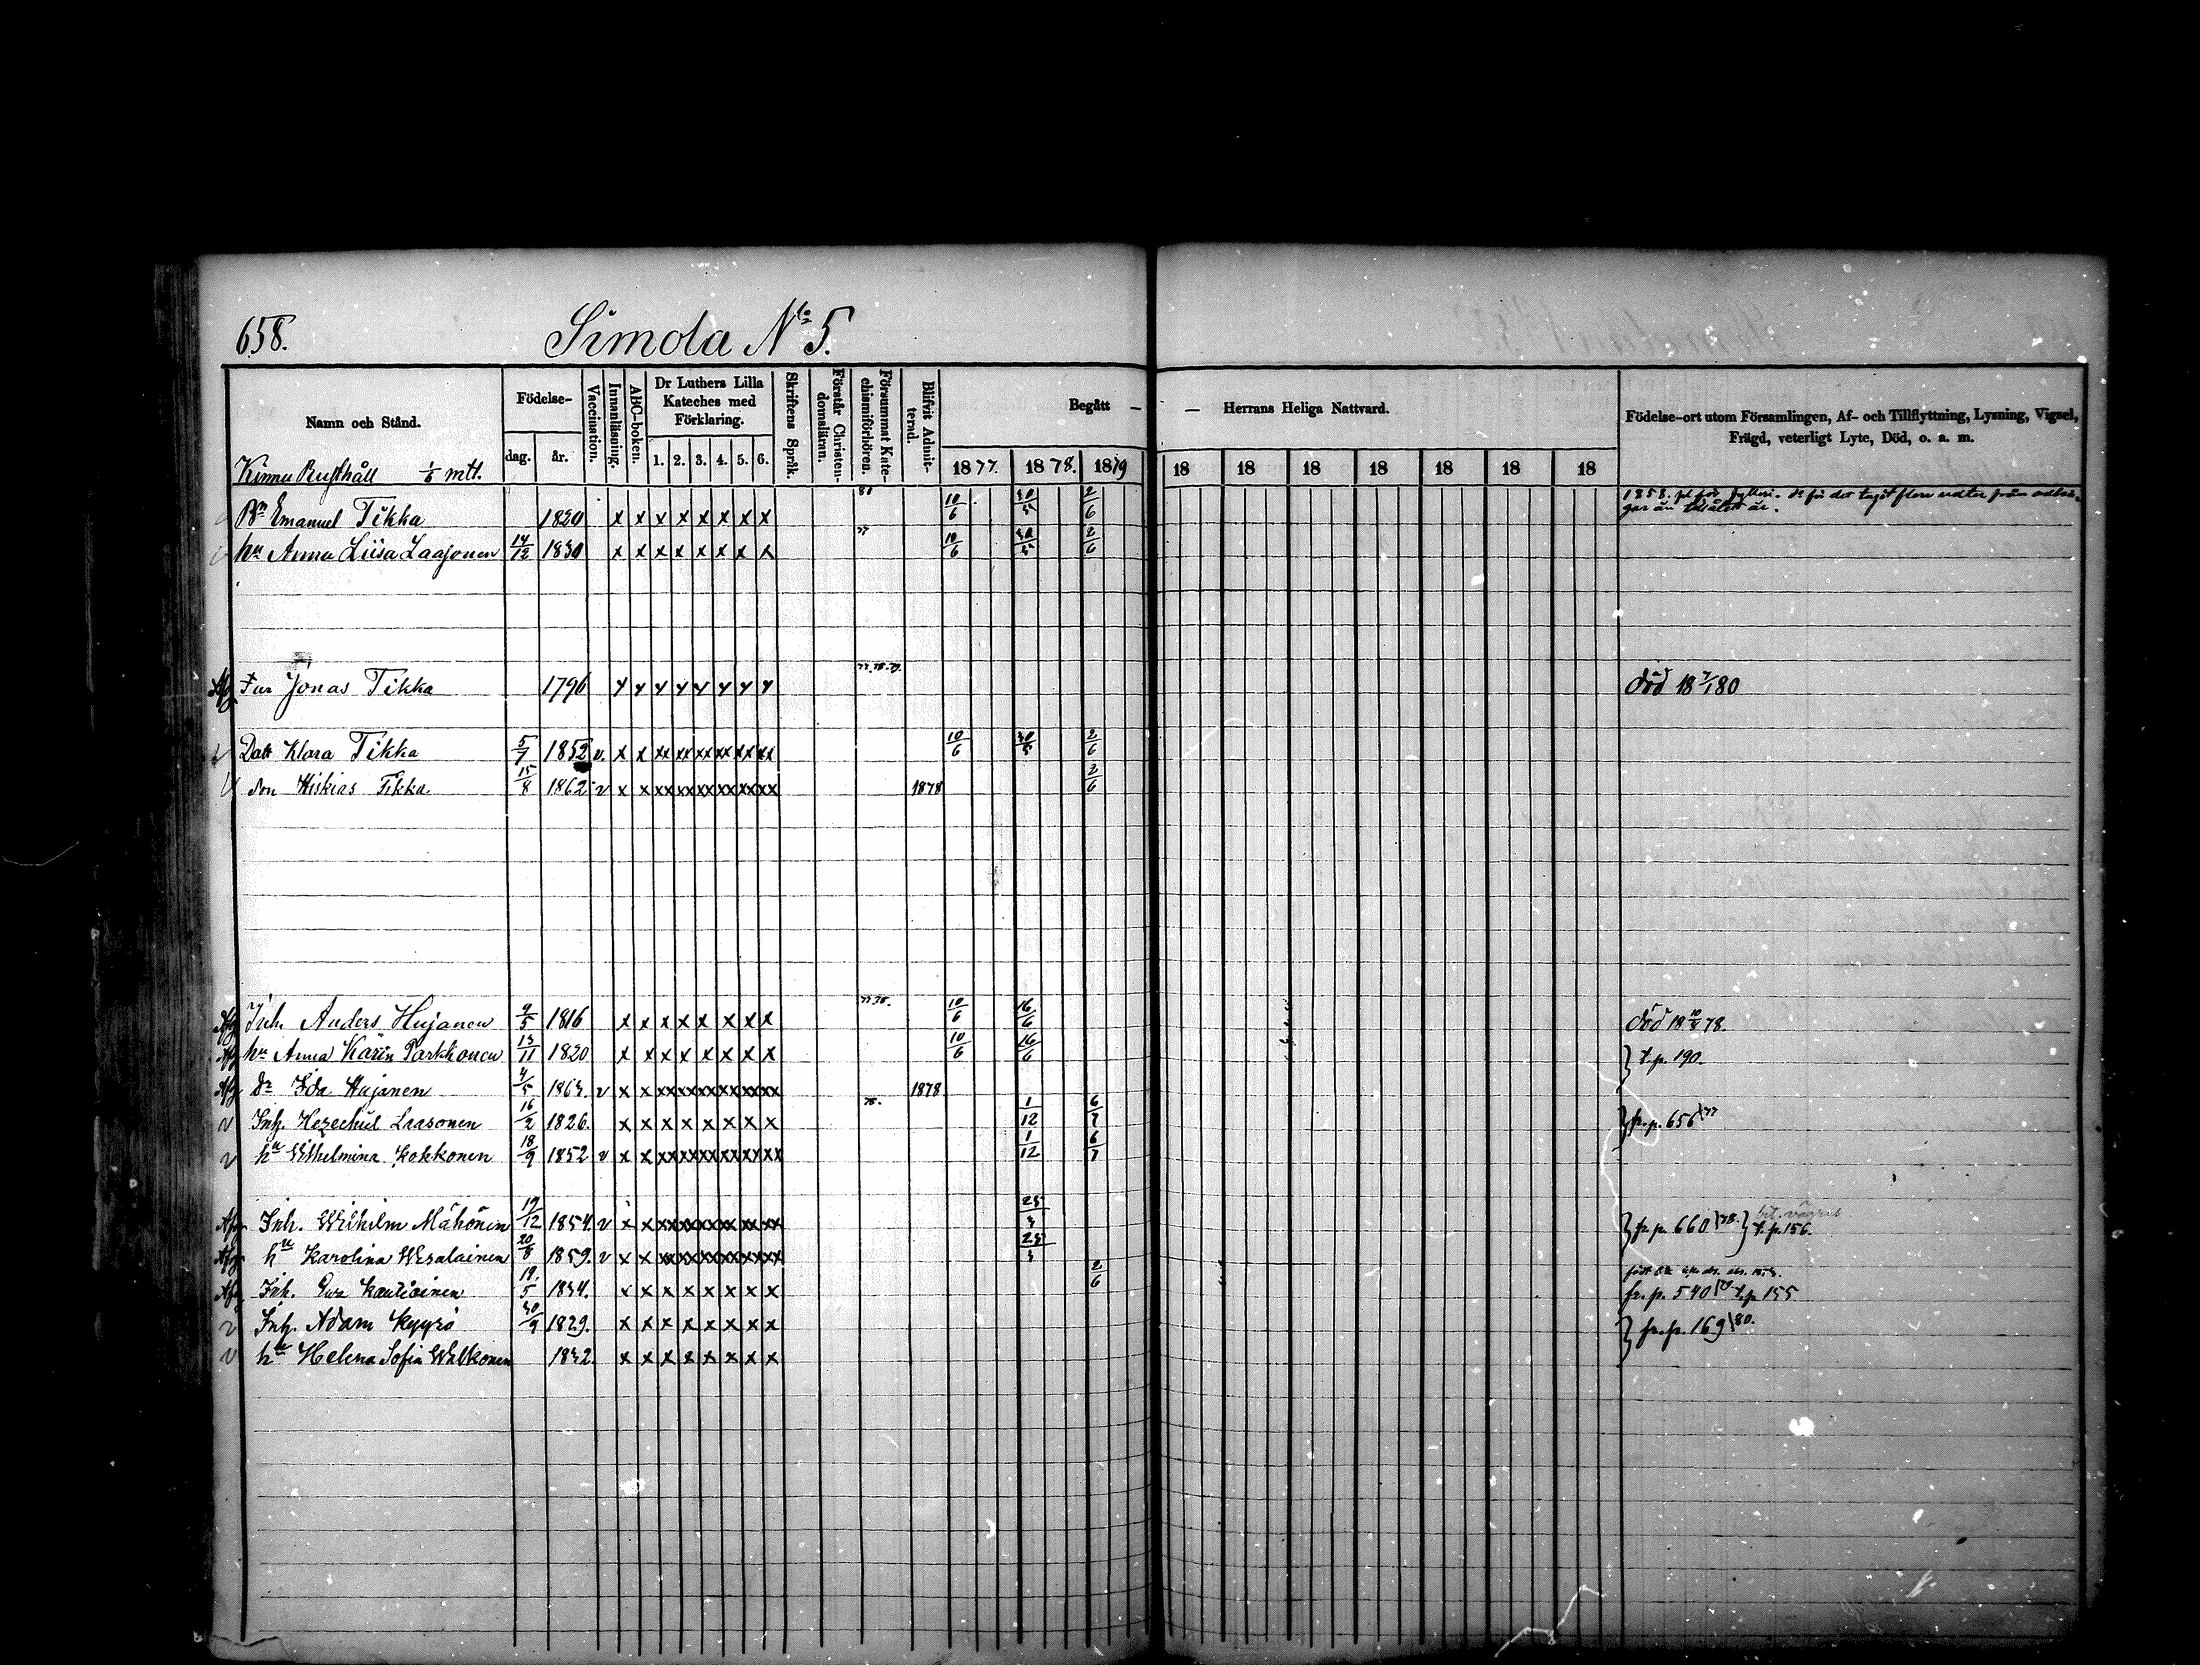 658. Simola No 5.
Namn och Stånd. Födelse- dag. år. Vaccination. Innanläsning. ABC-boken. Dr Luthers Lilla Kateches med Förklaring. 1. 2. 3. 4. 5. 6. Skriftens Språk. Förstår Christendomsläran. Försummat Katechismiförhören. Blifvit Admitterad. Begått — — Herrans Heliga Nattvard. Födelse-ort utom Församlingen, Af- och Tillflyttning, Lysning, Vigsel, Frägd, veterligt Lyte, Död, o. a. m.
1877. 1878. 1879 18 18 18 18 18 18 18
Kinnu Rusthåll 1/6 mtl.
Bn Emanuel Tikka 1820 x x x x x x x x 80 10/6 30/5 2/6 1858.
hu Anna Liisa Laajonen 14/12 1830 x x x x x x x x 77 10/6 30/5 2/6
Afg Far Jonas Tikka 1796 x x x x x x x x 77.78.79. död 18 7/1 80
v Dott Klara Tikka 5/7 1852 v. x x xx xx xx xx xx xx 10/6 30/5 2/6
v Son Hiskias Tikka 15/8 1862 v x x xx xx xx xx xx xx 1878 2/6
Afg Inh. Anders Hujanen 9/5 1816 x x x x x x x x 77.78. 10/6 16/6 död 18 78.
Afg hu Anna Karin Parkkonen 13/11 1820 x x x x x x x x 10/6 16/6 } t. p. 190.
Afg Dr Ida Hujanen 4/5 1863. v x x xx xx xx xx xx xx 1878
v Inh. Hezechiel Laasonen 16/2 1826. x x x x x x x x 78. 1/12 6/7 } fr. p. 656 \77
v hu Wilhelmina Kokkonen 18/9 1852 v x x xx xx xx xx xx xx 1/12 6/7
Afg Inh. Wilhelm Mähönen 19/12 1854. v x x xx xx xx xx xx xx 25/3 } fr. p. 660 \78. } t. p. 156.
Afg hu Karolina Wesalainen 20/8 1859. v x x xx xx xx xx xx xx 25/3
Afg Inh. Eva Kautiainen 19/5 1834. x x x x x x x x 2/6 fr. p. 540 t. p 155
v Inh. Adam Kyyrö 30/9 1829. x x x x x x x x } fr. p. 169 \80.
v hu Helena Sofia Walkonen 1832. x x x x x x x x